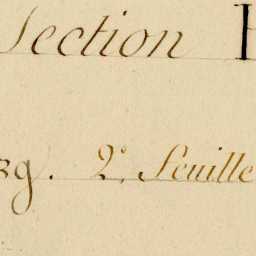 Section
2e. Feuille